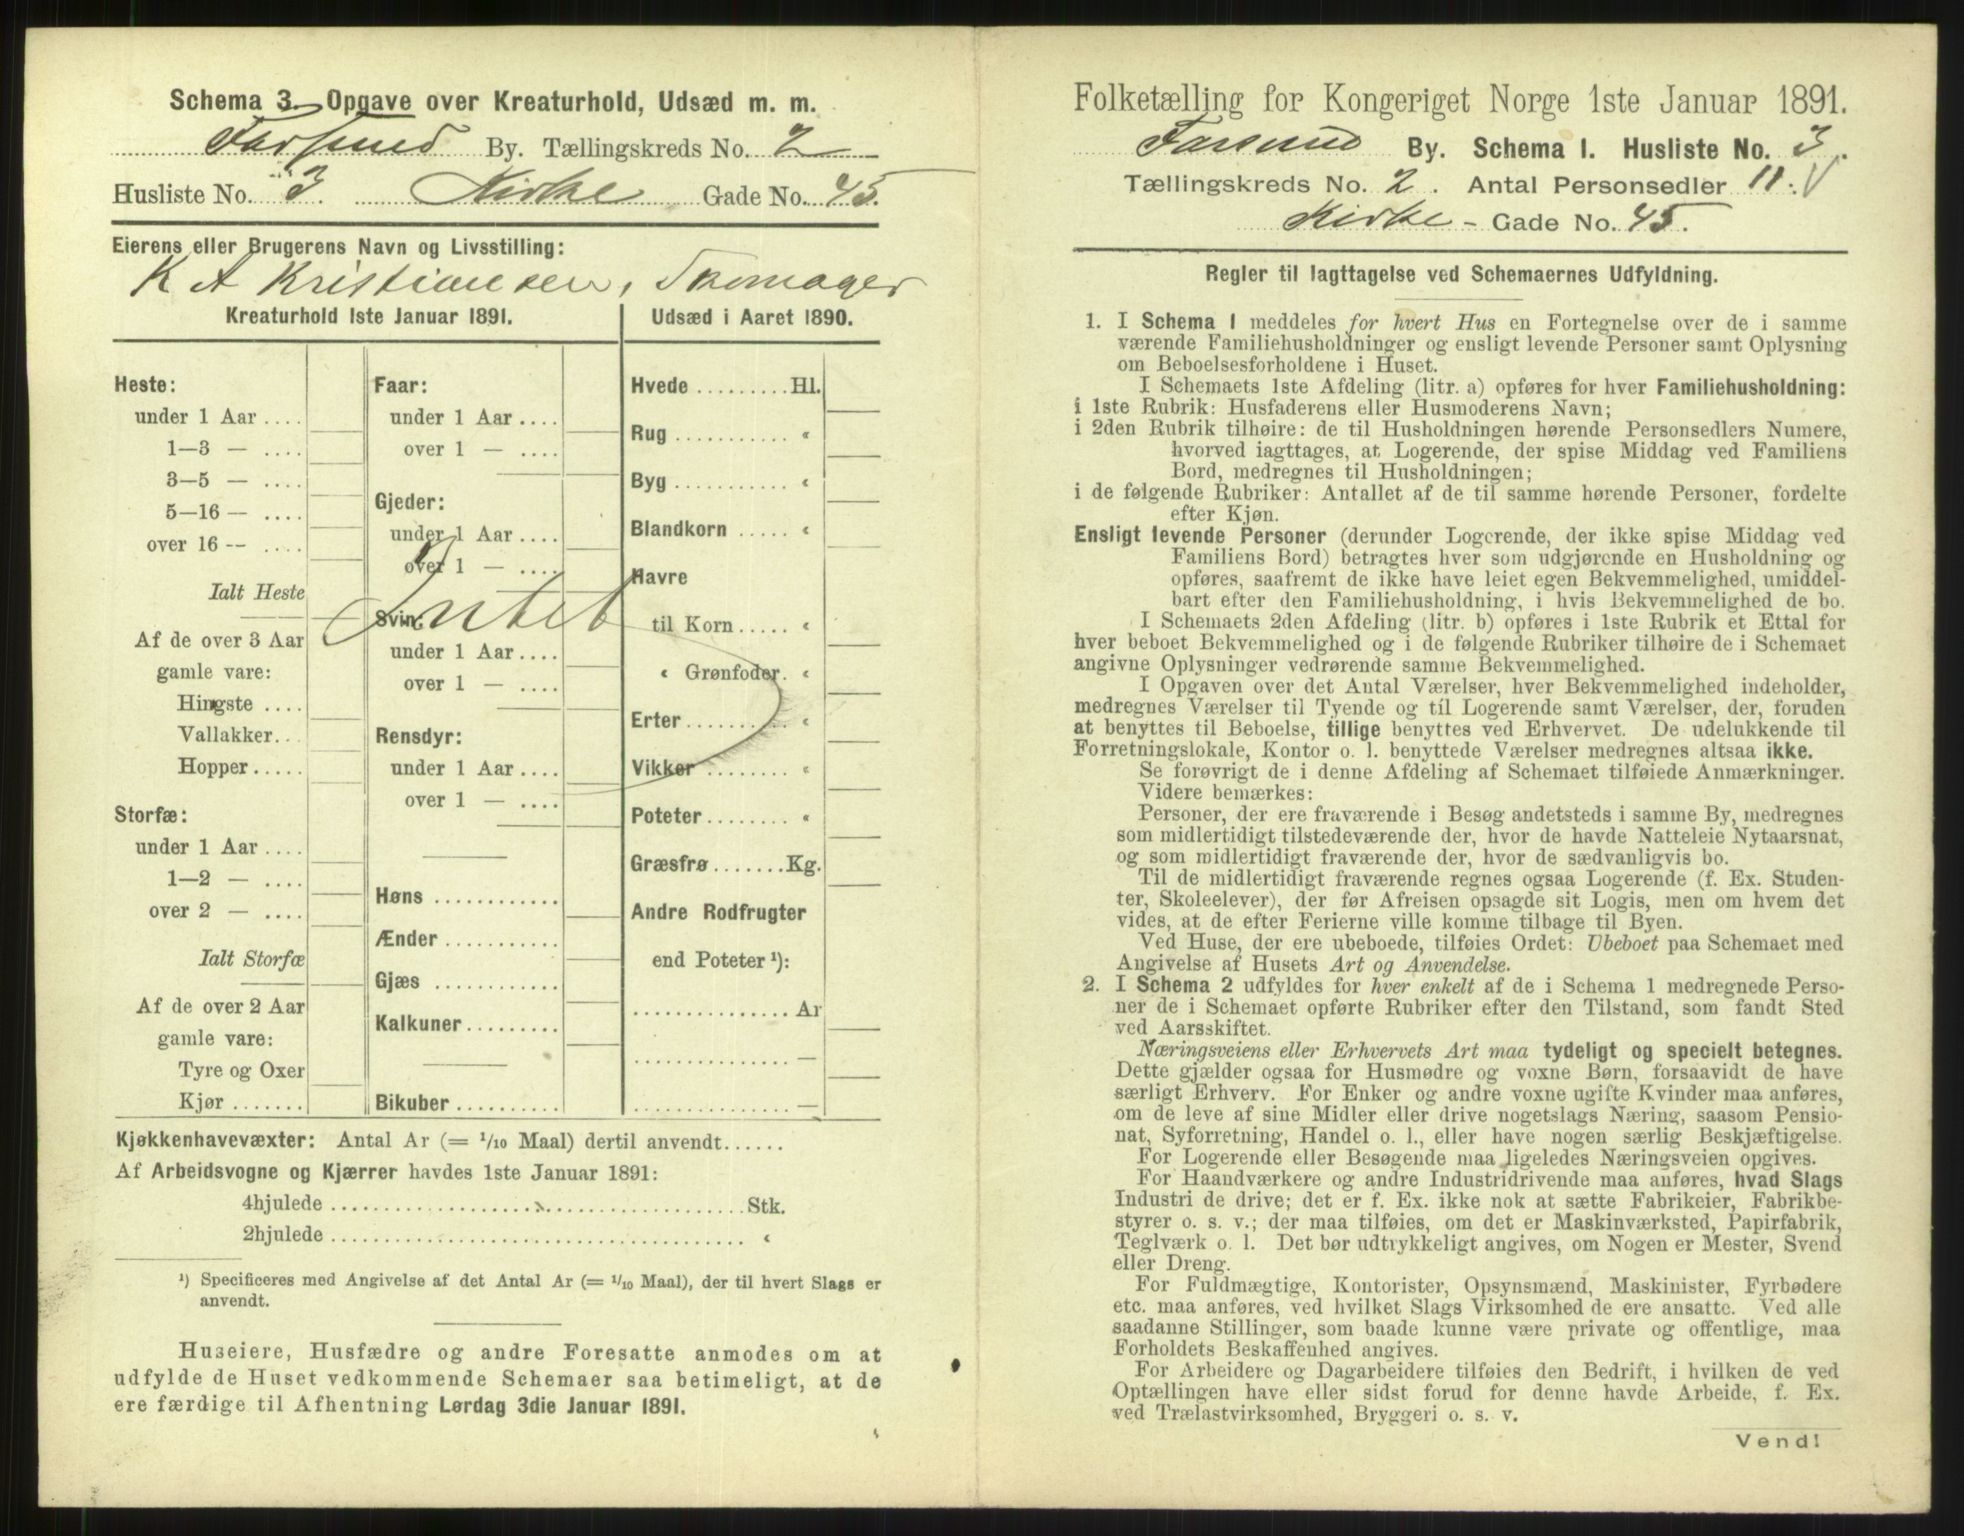 Schema 3. Opgave over Kreaturhold, Udsæd m. m.
Farsund By. Tællingskreds No. 2
Husliste No. 3 Kirke Gade No. 45.
Eierens eller Brugerens Navn og Livsstilling:
K A Kristiansen, Skomager
Kreaturhold 1ste Januar 1891.
Heste:
under 1 Aar ....
1—3 — ....
3—5 — ....
5—16 — ....
over 16 — ....
Ialt Heste
Af de over 3 Aar
gamle vare:
Hingste ....
Vallakker...
Hopper.....
Storfæ:
under 1 Aar ....
1—2 — ....
over 2 — ....
Ialt Storfæ
Af de over 2 Aar
gamle vare:
Tyre og Oxer
Kjør .......
Faar:
under 1 Aar ....
over 1 — ....
Gjeder:
under 1 Aar ....
over 1 — ....
Intet
Svin:
under 1 Aar ....
over 1 — ....
Rensdyr:
under 1 Aar ....
over 1 — ....
Høns ............
Ænder ...........
Gjæs ............
Kalkuner.........
Bikuber ..........
Udsæd i Aaret 1890.
Hvede .........Hl.
Rug ........... «
Byg ........... «
Blandkorn ..... «
Havre
til Korn..... «
« Grønfoder. «
Erter.......... «
Vikker ........ «
Poteter........ «
Græsfrø .......Kg.
Andre Rodfrugter
end Poteter ¹):
............... Ar
............... —
............... —
Kjøkkenhavevæxter: Antal Ar (= 1/10 Maal) dertil anvendt......
Af Arbeidsvogne og Kjærrer havdes 1ste Januar 1891:
4hjulede ........................................Stk.
2hjulede ........................................ «
¹) Specificeres med Angivelse af det Antal Ar (= 1/10 Maal), der til hvert Slags er
anvendt.
Huseiere, Husfædre og andre Foresatte anmodes om at
udfylde de Huset vedkommende Schemaer saa betimeligt, at de
ere færdige til Afhentning Lørdag 3die Januar 1891.
Folketælling for Kongeriget Norge 1ste Januar 1891.
Farsund By. Schema I. Husliste No. 3.
Tællingskreds No. 2. Antal Personsedler 11. V
Kirke - Gade No. 45.
Regler til Iagttagelse ved Schemaernes Udfyldning.
1. I Schema I meddeles for hvert Hus en Fortegnelse over de i samme
værende Familiehusholdninger og ensligt levende Personer samt Oplysning
om Beboelsesforholdene i Huset.
I Schemaets 1ste Afdeling (litr. a) opføres for hver Familiehusholdning:
i 1ste Rubrik: Husfaderens eller Husmoderens Navn;
i 2den Rubrik tilhøire: de til Husholdningen hørende Personsedlers Numere,
hvorved iagttages, at Logerende, der spise Middag ved Familiens
Bord, medregnes til Husholdningen;
i de følgende Rubriker: Antallet af de til samme hørende Personer, fordelte
efter Kjøn.
Ensligt levende Personer (derunder Logerende, der ikke spise Middag ved
Familiens Bord) betragtes hver som udgjørende en Husholdning og
opføres, saafremt de ikke have leiet egen Bekvemmelighed, umiddel-
bart efter den Familiehusholdning, i hvis Bekvemmelighed de bo.
I Schemaets 2den Afdeling (litr. b) opføres i 1ste Rubrik et Ettal for
hver beboet Bekvemmelighed og i de følgende Rubriker tilhøire de i Schemaet
angivne Oplysninger vedrørende samme Bekvemmelighed.
I Opgaven over det Antal Værelser, hver Bekvemmelighed indeholder,
medregnes Værelser til Tyende og til Logerende samt Værelser, der, foruden
at benyttes til Beboelse, tillige benyttes ved Erhvervet. De udelukkende til
Forretningslokale, Kontor o. l. benyttede Værelser medregnes altsaa ikke.
Se forøvrigt de i denne Afdeling af Schemaet tilføiede Anmærkninger.
Videre bemærkes:
Personer, der ere fraværende i Besøg andetsteds i samme By, medregnes
som midlertidigt tilstedeværende der, hvor de havde Natteleie Nytaarsnat,
og som midlertidigt fraværende der, hvor de sædvanligvis bo.
Til de midlertidigt fraværende regnes ogsaa Logerende (f. Ex. Studen-
ter, Skoleelever), der før Afreisen opsagde sit Logis, men om hvem det
vides, at de efter Ferierne ville komme tilbage til Byen.
Ved Huse, der ere ubeboede, tilføies Ordet: Ubeboet paa Schemaet med
Angivelse af Husets Art og Anvendelse.
2. I Schema 2 udfyldes for hver enkelt af de i Schema 1 medregnede Perso-
ner de i Schemaet opførte Rubriker efter den Tilstand, som fandt Sted
ved Aarsskiftet.
Næringsveiens eller Erhvervets Art maa tydeligt og specielt betegnes.
Dette gjælder ogsaa for Husmødre og voxne Børn, forsaavidt de have
særligt Erhverv. For Enker og andre voxne ugifte Kvinder maa anføres,
om de leve af sine Midler eller drive nogetslags Næring, saasom Pensio-
nat, Syforretning, Handel o. l., eller have nogen særlig Beskjæftigelse.
For Logerende eller Besøgende maa ligeledes Næringsveien opgives.
For Haandværkere og andre Industridrivende maa anføres, hvad Slags
Industri de drive; det er f. Ex. ikke nok at sætte Fabrikeier, Fabrikbe-
styrer o. s. v.; der maa tilføies, om det er Maskinværksted, Papirfabrik,
Teglværk o. l. Det bør udtrykkeligt angives, om Nogen er Mester, Svend
eller Dreng.
For Fuldmægtige, Kontorister, Opsynsmænd, Maskinister, Fyrbødere
etc. maa anføres, ved hvilket Slags Virksomhed de ere ansatte. Ved alle
saadanne Stillinger, som baade kunne være private og offentlige, maa
Forholdets Beskaffenhed angives.
For Arbeidere og Dagarbeidere tilføies den Bedrift, i hvilken de ved
Optællingen have eller sidst forud for denne havde Arbeide, f. Ex.
ved Trælastvirksomhed, Bryggeri o. s. v.
Vend!